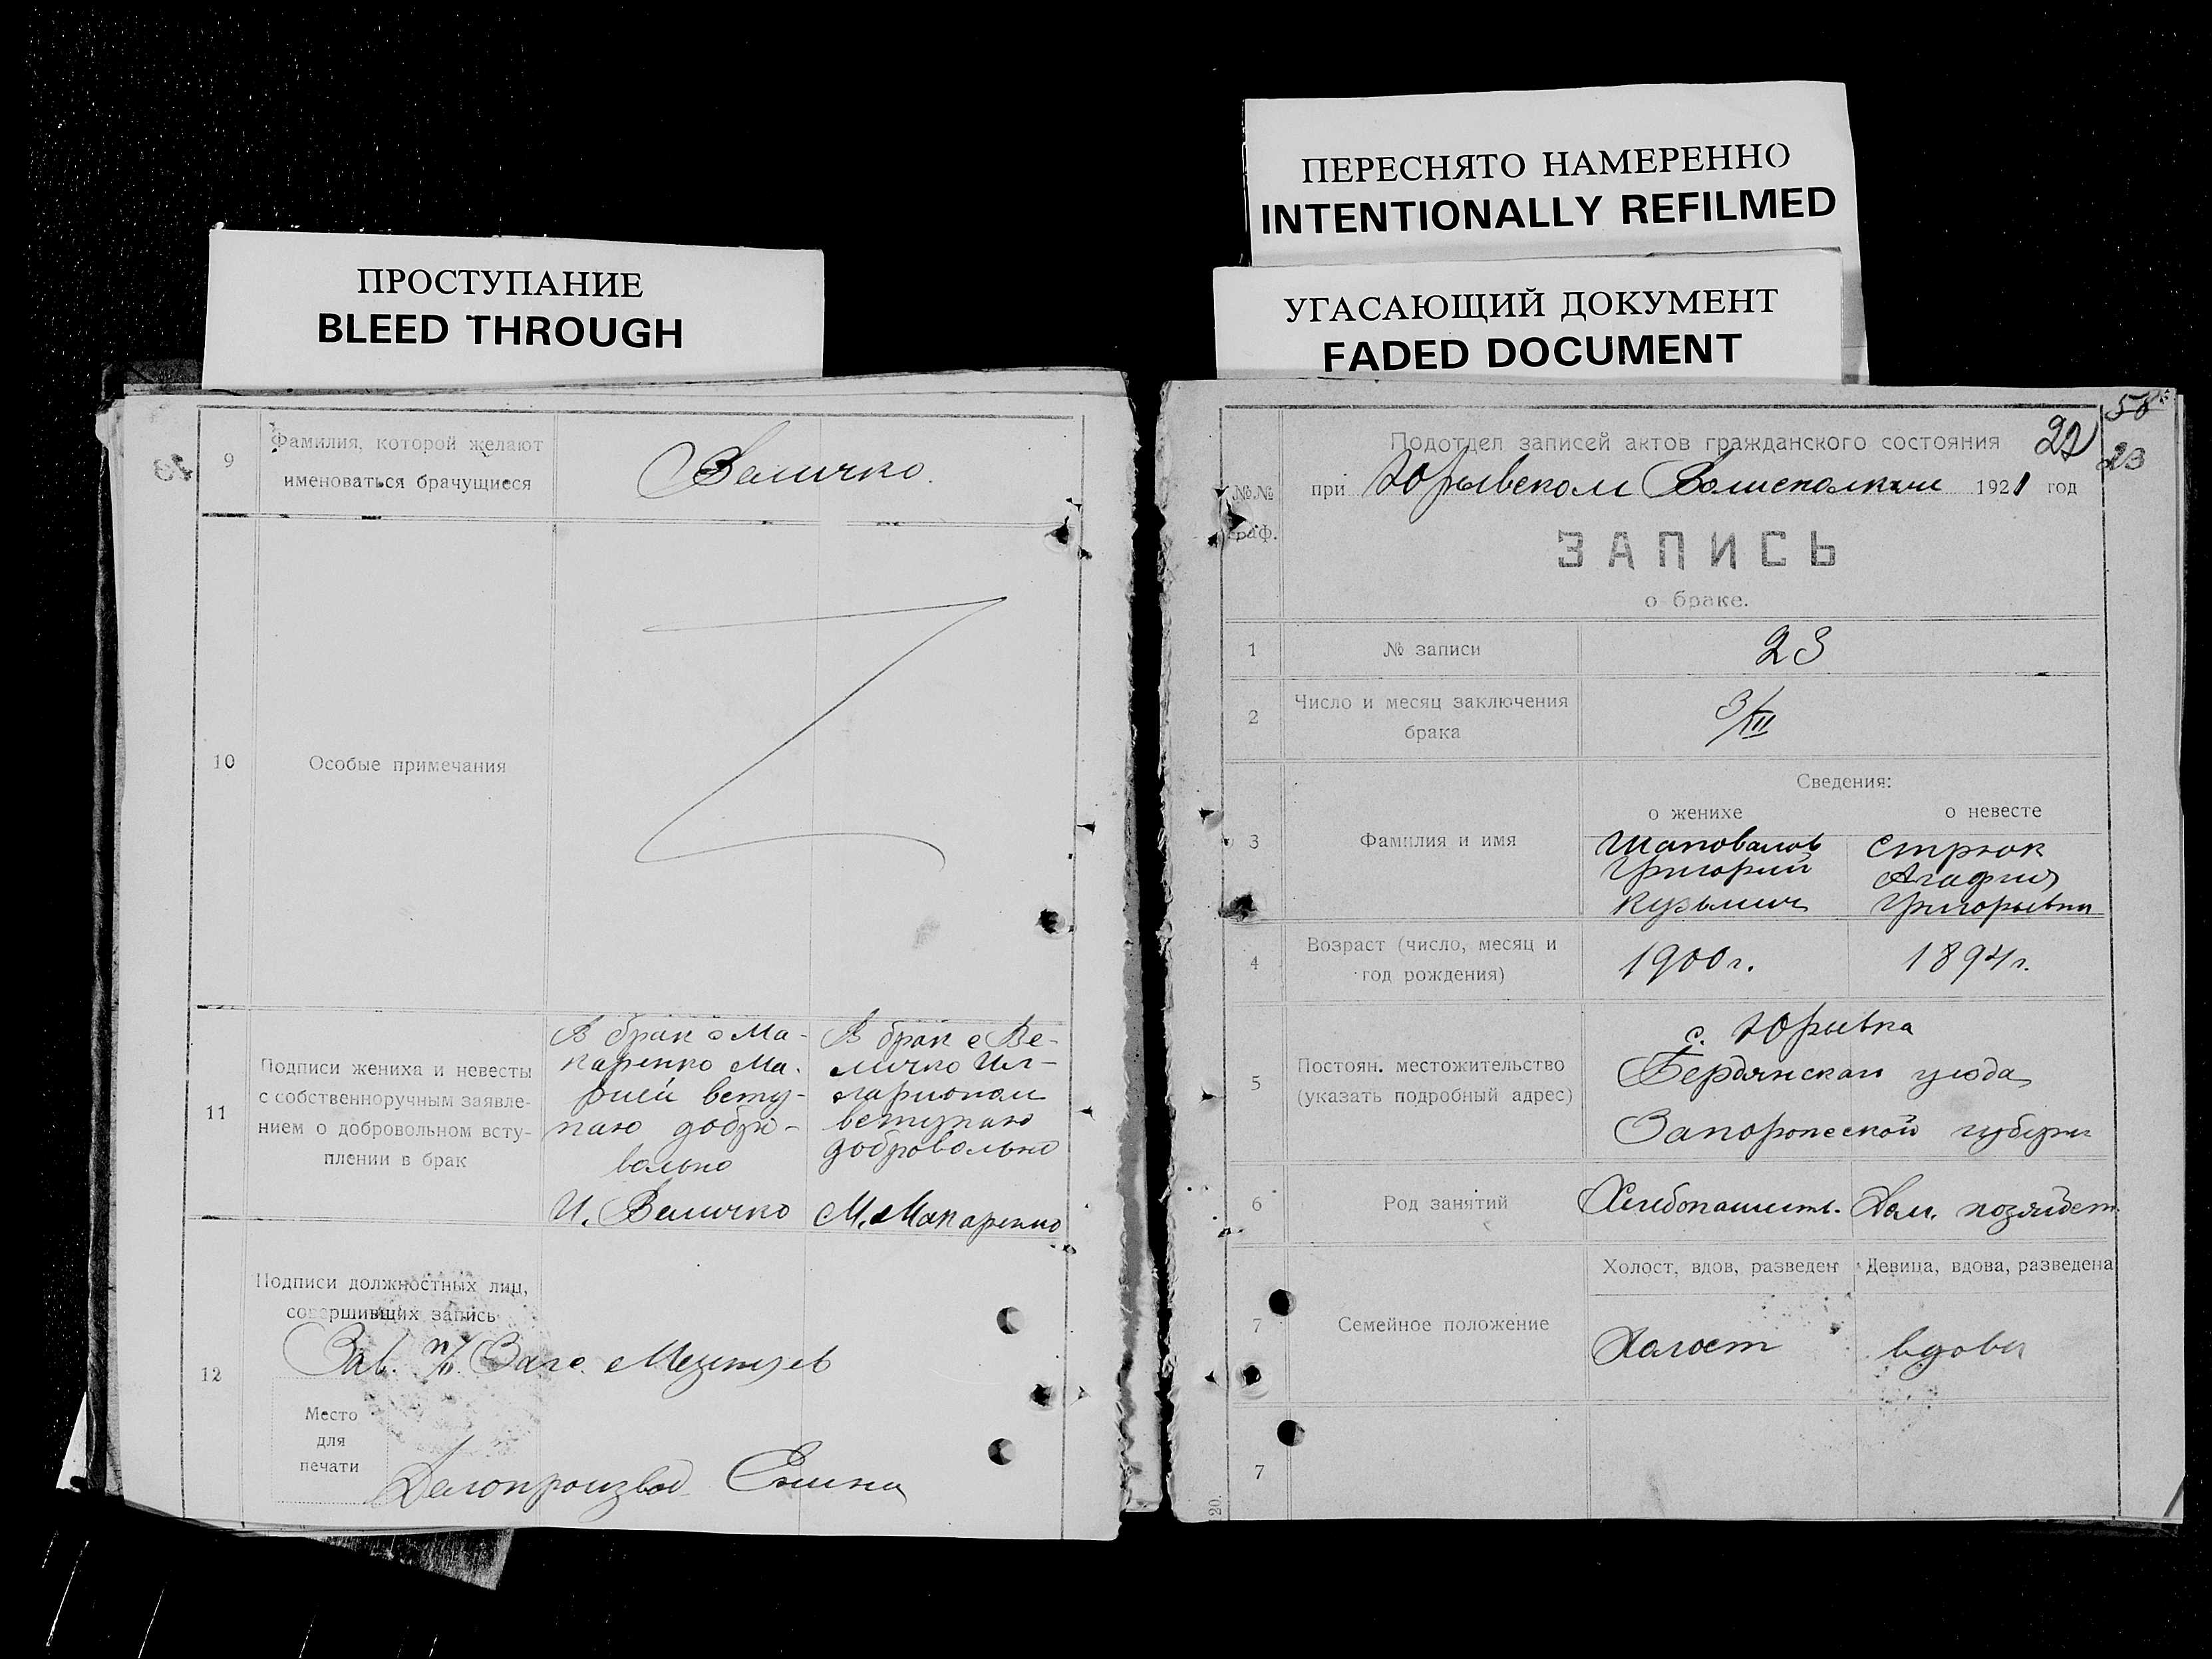 ПЕРЕСНЯТО НАМЕРЕННО
INTENTIONALLY REFILMED
ПРОСТУПАНИЕ
BLEED THROUGH
УГАСАЮЩИЙ ДОКУМЕНТ
FADED DOCUMENT
9
Фамилия, которой желают
именоваться брачущиеся
Величко.
10
Особые примечания
11
Подписи жениха и невесты
с собственноручным заявле-
нием о добровольном всту-
плении в брак
В брак с Ма-
каренко Ма-
рией всту-
паю добро-
вольно
И. Величко
В брак с Ве-
личко Ил-
ларионом
вступаю
добровольно
М. Макаренко
12
Подписи должностных лиц,
совершивших запись
Зав. п/о Загс
Место
для
печати
Делопроизвод
58
22
23
№№
граф.
Подотдел записей актов гражданского состояния
при Юрьевском Волисполкоме 1921 год
ЗАПИСЬ
о браке.
1
№ записи
23
2
Число и месяц заключения
брака
3/VII
Сведения:
о женихе
о невесте
3
Фамилия и имя
Шаповалов
Григорий
Кузьмич
Стрюк
Агафия
Григорьевна
4
Возраст (число, месяц и
год рождения)
1900г.
1894г.
5
Постоян. местожительство
(указать подробный адрес)
с. Юрьевка
Бердянскаго уезда
Запорожской губерн
6
Род занятий
Хлебопашест.
Дом. хозяйст.
7
Семейное положение
Холост, вдов, разведен
Девица, вдова, разведена
Холост
вдова
7
20.